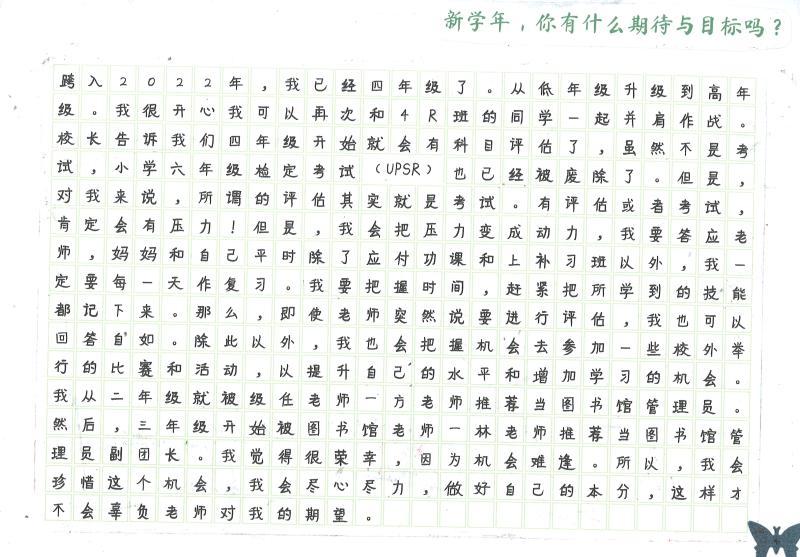 新学年，你有什么期待与目标吗？
跨入2022年，我已经四年级了。从低年级升级到高年
级。我很开心我可以再次和4R班的同学一起并肩作战。
校长告诉我们四年级开始就会有科目评估了，虽然不是考
试，小学六年级检定考试（UPSR）也已经被废除了。但是，
对我来说，所谓的评估其实就是考试。有评估或者考试，
肯定会有压力！但是，我会把压力变成动力，我要答应老
师，妈妈和自己平时除了应付功课和上补习班以外，我一
定要每一天作复习。我要把握时间，赶紧把所学到的技能
都记下来。那么，即使老师突然说要进行评估，我也可以
回答自如。除此以外，我也会把握机会去参加一些校外举
行的比赛和活动，以提升自己的水平和增加学习的机会。
我从二年级就被级任老师一方老师推荐当图书馆管理员。
然后，三年级开始被图书馆老师一林老师推荐当图书馆管
理员副团长。我觉得很荣幸，因为机会难逢。所以，我会
珍惜这个机会，我会尽心尽力，做好自己的本分，这样才
不会辜负老师对我的期望。